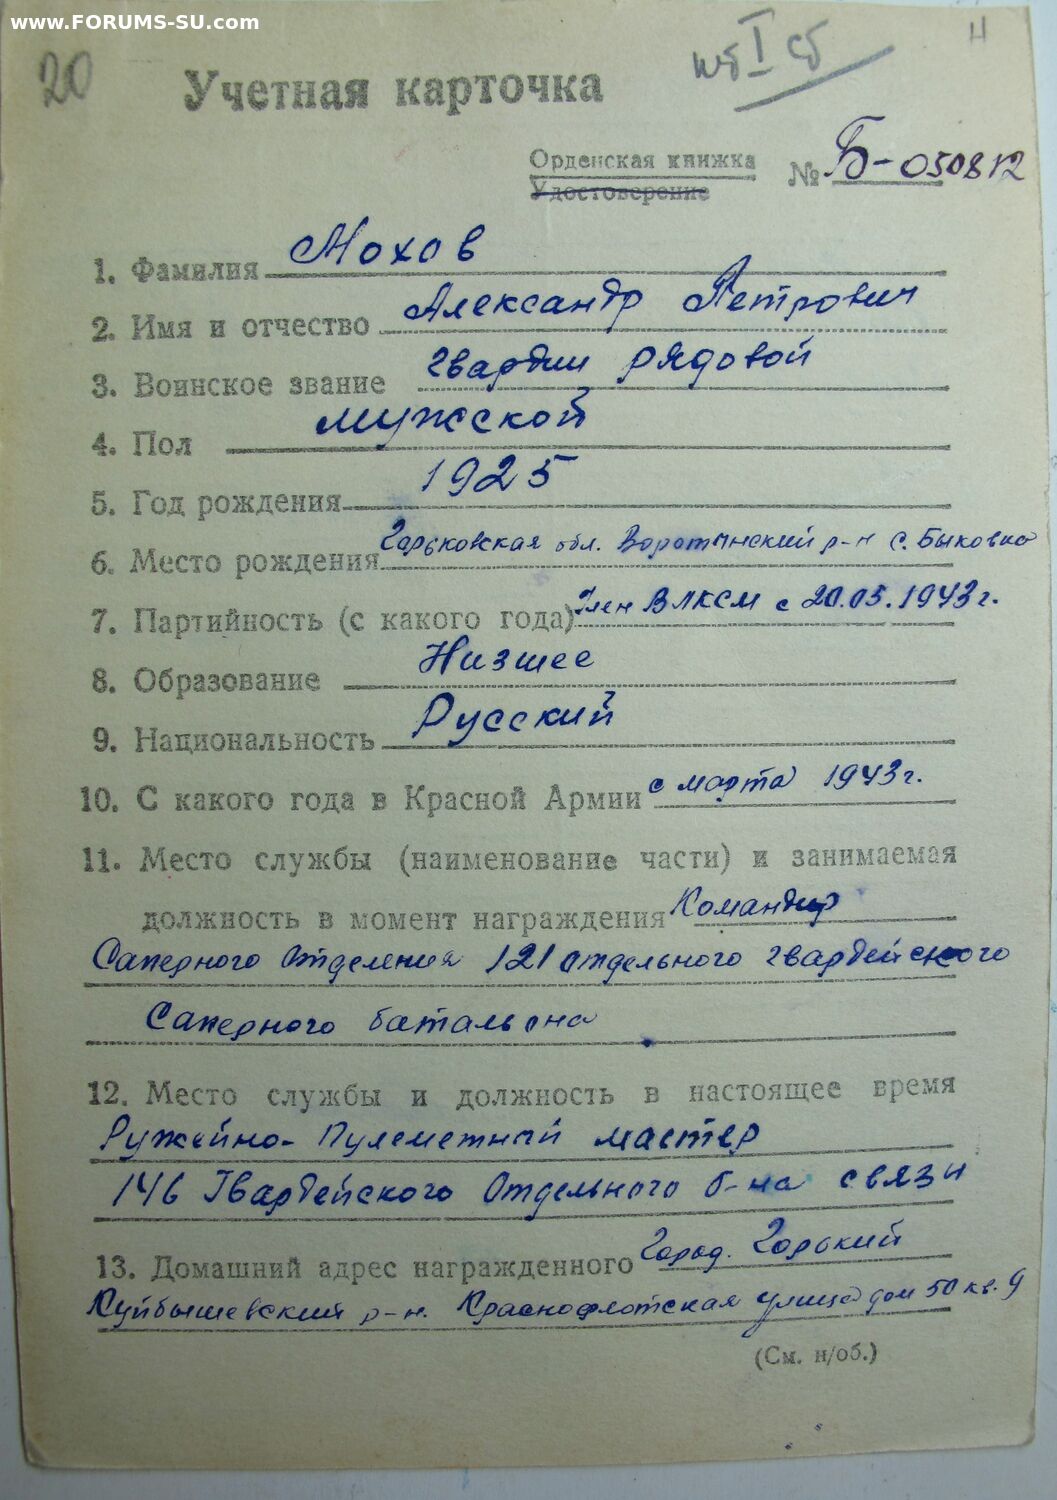 www.FORUMS-SU.com
20
I
Н
Учетная карточка
Орденская книжка
Удостоверение
№ Б-050812
1. Фамилия Мохов
2. Имя и отчество Александр Петрович
3. Воинское звание гвардии рядовой
4. Пол мужской
5. Год рождения 1925
6. Место рождения Горьковская обл. Воротынский р-н с. Быковка
7. Партийность (с какого года) Член ВЛКСМ с 20.05.1943г.
8. Образование Низшее
9. Национальность Русский
10. С какого года в Красной Армии с марта 1943г.
11. Место службы (наименование части) и занимаемая
должность в момент награждения Командир
Саперного Отделения 121 отдельного гвардейского
Саперного батальона
12. Место службы и должность в настоящее время
Ружейно-Пулеметный мастер
146 Гвардейского Отдельного б-на связи
13. Домашний адрес награжденного Город. Горький
Куйбышевский р-н. Краснофлотская улица дом 50 кв. 9
(См. н/об.)